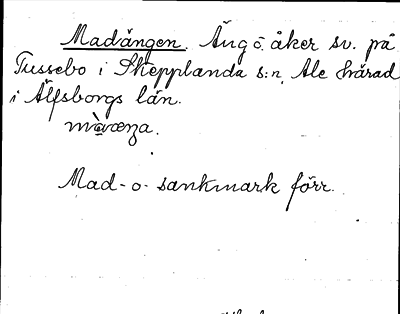 Madängen. Äng o. åker sv. på
Tussebo i Skepplanda s:n, Ale härad
i Älfsborgs län.
Mad- o- sankmark förr.